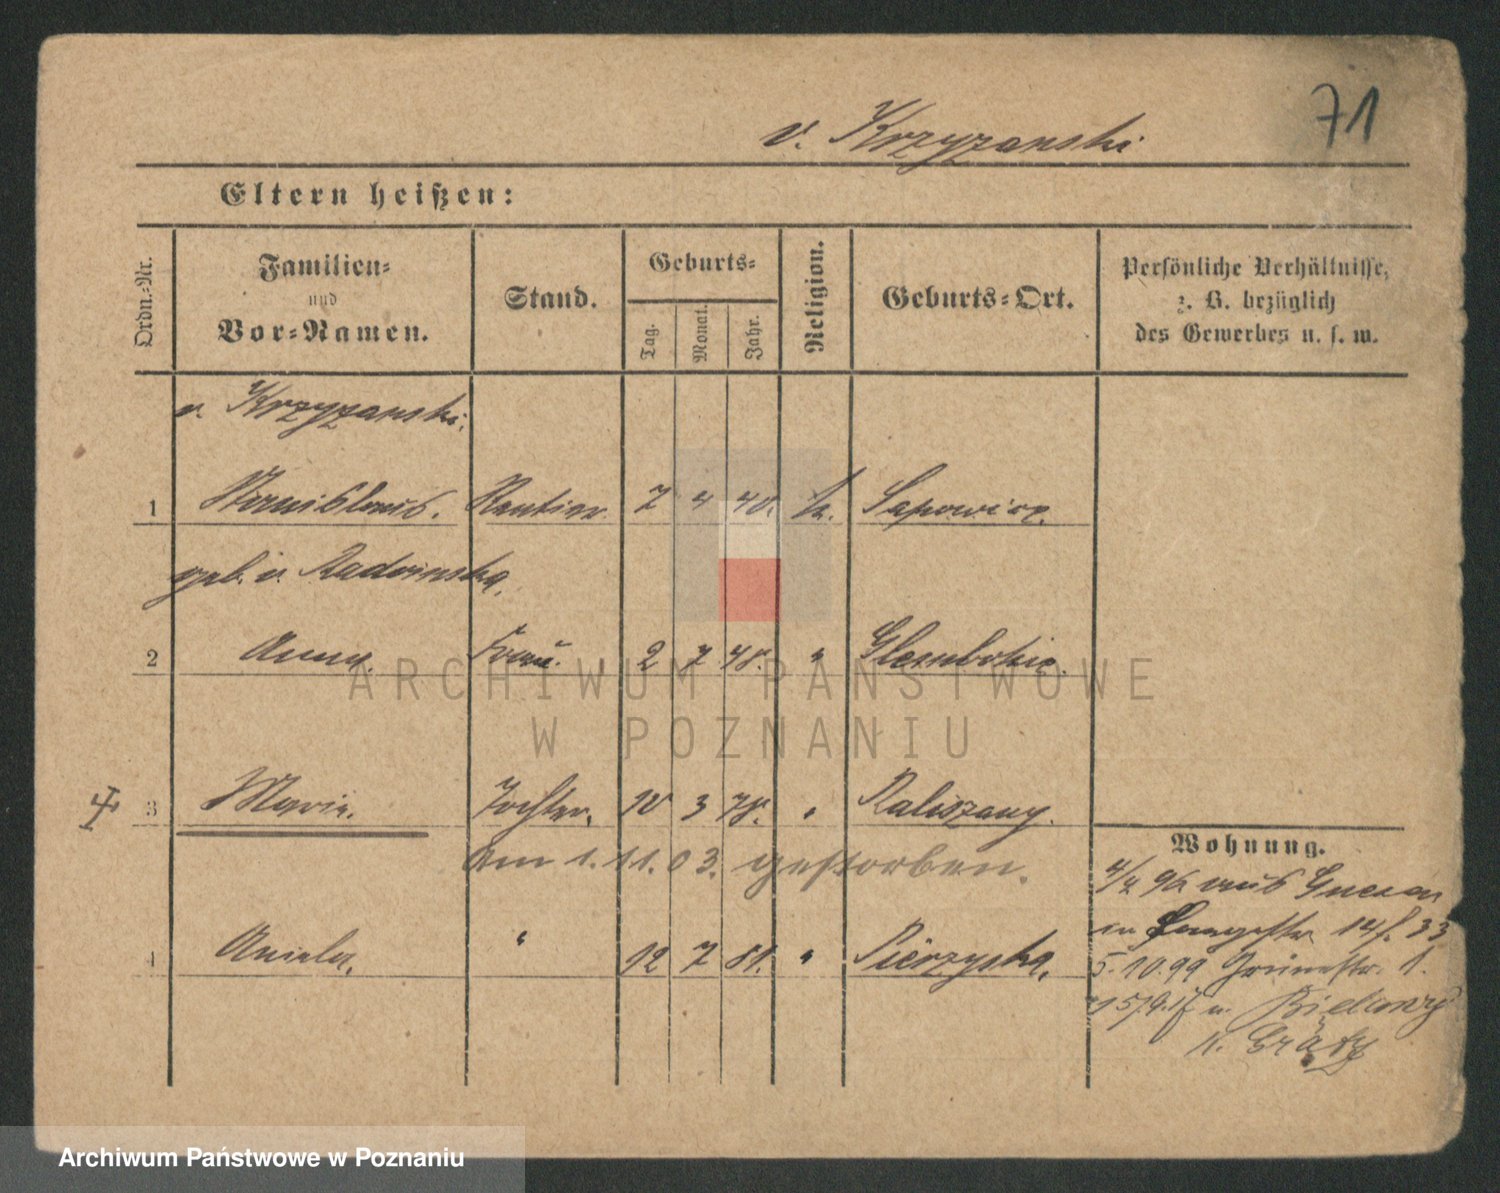 71
v. Krzyzanski
Eltern heißen:
Ordn.-Nr.
Familien-
und
Vor-Namen.
Stand.
Geburts-
Tag.
Monat.
Jahr.
Religion.
Geburts-Ort.
Persönliche Verhältnisse,
z. B. bezüglich
des Gewerbes u. s. w.
v. Krzyzanski.
1 Stanislaus. Rentier 7 4 40. k. Sapowice.
geb. v. Radonska.
2 Anna. Frau. 2 7 48. " Glembokie.
3 Maria. Tochter. 10 3 78. " Raliszany.
am 1.11.03. gestorben.
4 Aniela. " 12 7 81. " Pierzyska.
Wohnung.
4/4 96 aus Gnesen
in Langestr. 14/. 33
5.10.99 Grünestr. 1.
n.
K. Grätz
ARCHIWUM PAŃSTWOWE
W POZNANIU
Archiwum Państwowe w Poznaniu